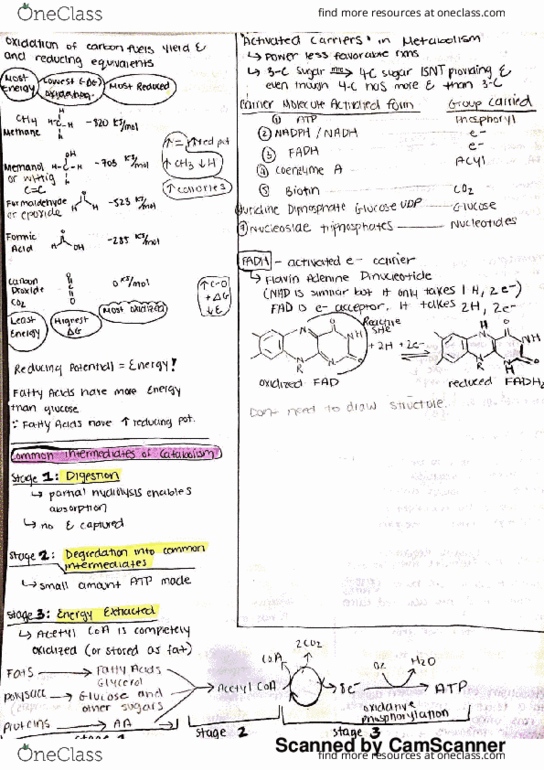 OneClass
find more resources at oneclass.com
oxidation of carbon fuels yield E
and reducing equivalents
Most Energy
Lowest (-ΔG) oxidation
Most Reduced
CH4
Methane
-820 KJ/mol
↑ CH3 ↓ H
Methanol
or
C=C
-703 KJ/mol
↑ calories
Formaldehyde
or epoxide
-523 KJ/mol
Formic
Acid
-285 KJ/mol
Carbon
Dioxide
CO2
0 KJ/mol
↑ C-O
+ΔG
↓ E
Least Energy
Highest ΔG
Most oxidized
Reducing Potential = Energy!
Fatty Acids have more energy
than glucose
∵ Fatty Acids have ↑ reducing pot.
Common Intermediates of Catabolism
Stage 1: Digestion
↳ partial hydrolysis enables
absorption
↳ no E captured
Stage 2: Degredation into common
intermediates
↳ small amount ATP made
Stage 3: Energy Extracted
↳ Acetyl CoA is completely
oxidized (or stored as fat)
"Activated Carriers" in Metabolism
↳ power less favorable rxns
↳ 3-C sugar → 4-C sugar ISNT providing E
even though 4-C has more E than 3-C
Carrier Molecule Activated form Group carried
① ATP phosphoryl
② NADPH / NADH e-
③ FADH e-
④ coenzyme A Acyl
⑤ Biotin CO2
Uridine Diphosphate Glucose UDP Glucose
Nucleoside triphosphates Nucleotides
FADH - activated e- carrier
↳ Flavin Adenine Dinucleotide
(NAD is similar but it only takes 1 H, 2e-)
FAD is e- acceptor. It takes 2H, 2e-
Reactive
site
+ 2H + 2e-
oxidized FAD
reduced FADH2
Don't need to draw structure.
Fats → Fatty Acids
Glycerol
polysacc → Glucose and
other sugars
proteins → AA
Acetyl CoA
CoA
2CO2
8e-
O2
H2O
ATP
oxidative
phosphorylation
stage 2
stage 3
Scanned by CamScanner
OneClass
find more resources at oneclass.com